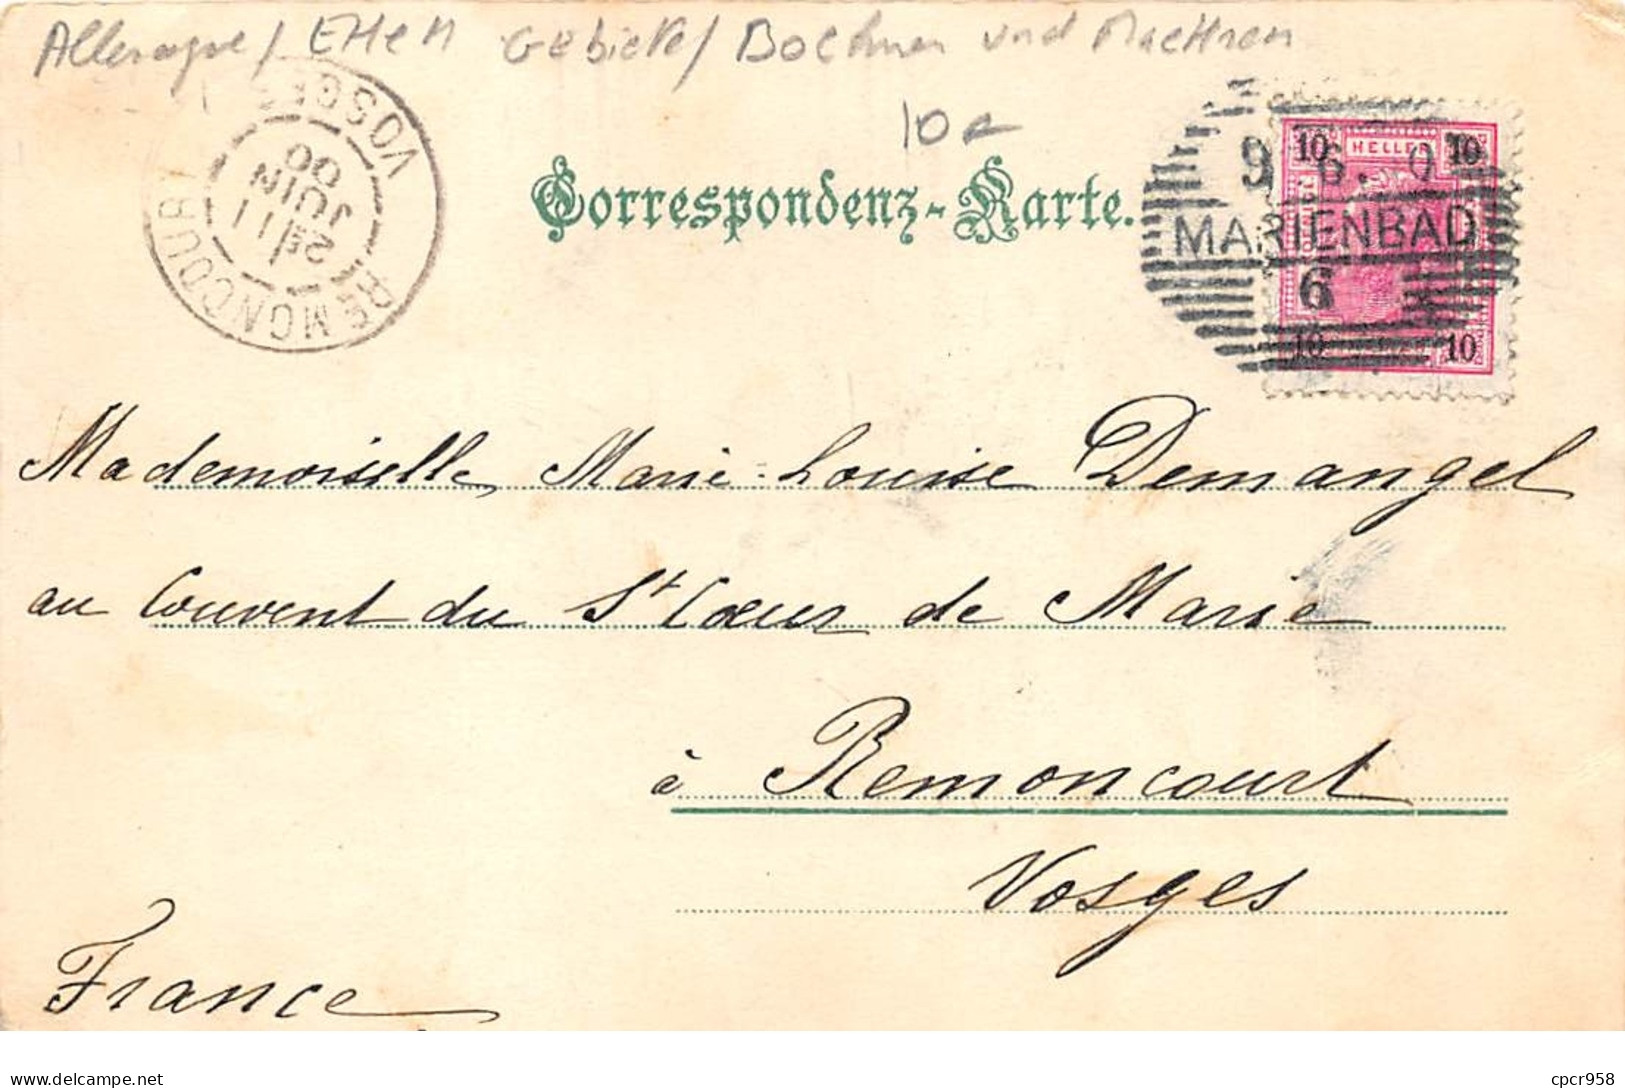 Allemagne / EHeM Gebiete / Boehmen und Maehren
10e
Correspondenz-Karte.
REMONCOURT VOSGES
2E / 11
JUIN
00
10 HELLER 10
9 6. 0
MARIENBAD
6
10 10
Mademoiselle Marie-Louise Demangel
au Couvent du St Cœur de Marie
à Remoncourt
Vosges
France
delcampe.net
cpcr958